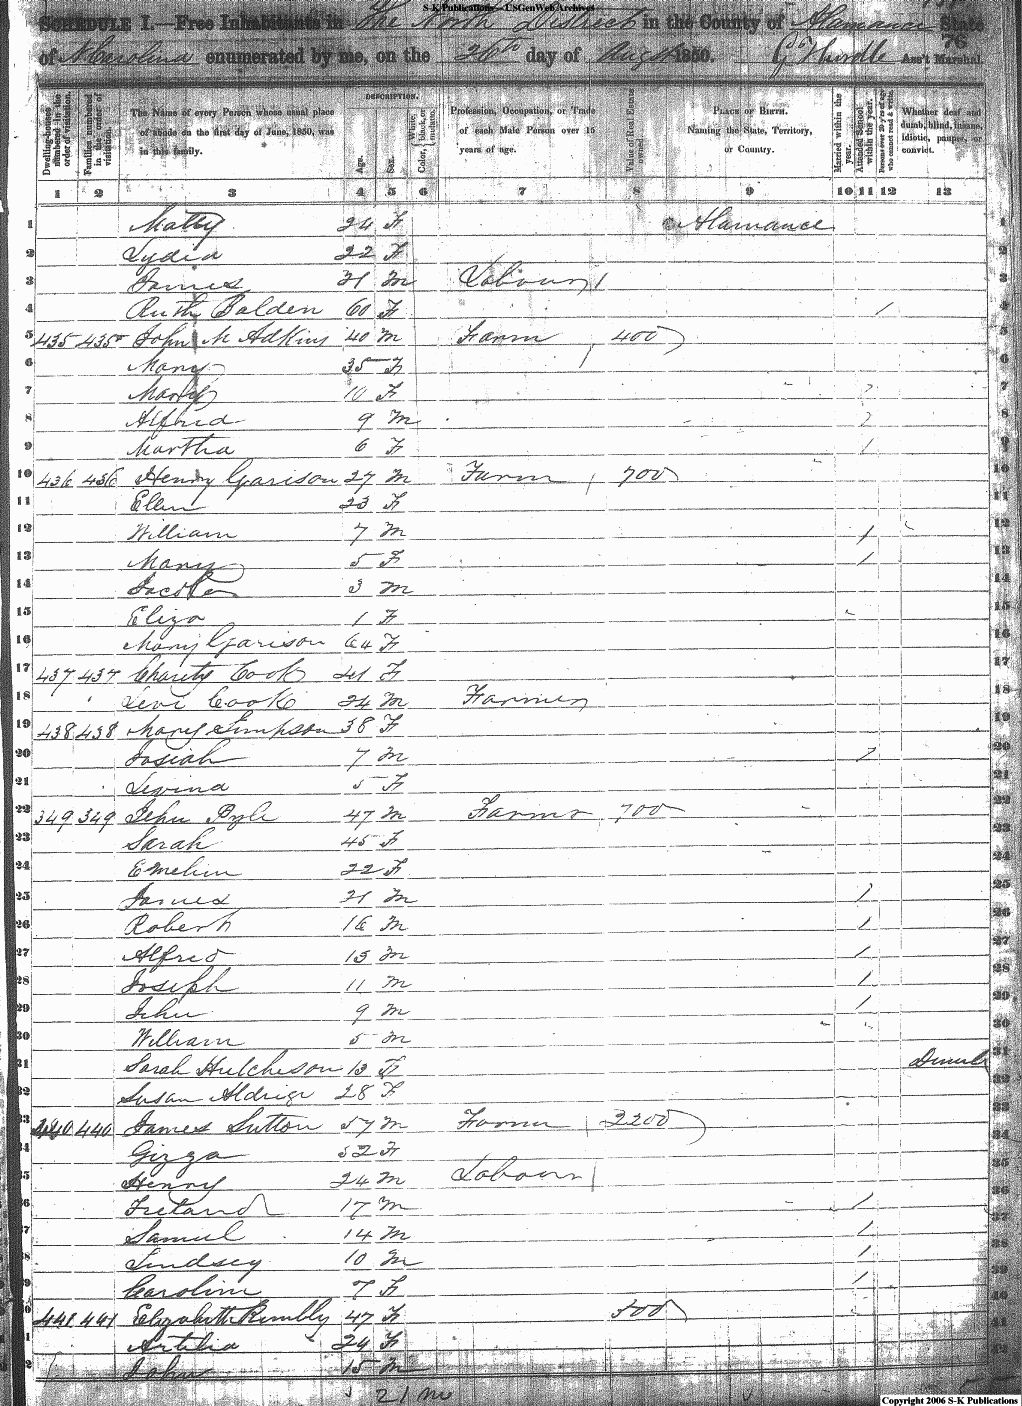 S-K Publications - USGenWeb Archives
SCHEDULE I.—Free Inhabitants in The North District in the County of Alamance State
of N Carolina enumerated by me, on the 26th day of Augt 1850. G Hurdle Ass't Marshal.
76
Dwelling-houses numbered in the order of visitation.
Families numbered in the order of visitation.
The Name of every Person whose usual place of abode on the first day of June, 1850, was in this family.
DESCRIPTION.
Age.
Sex.
Color, White, black, or mulatto.
Profession, Occupation, or Trade of each Male Person over 15 years of age.
Value of Real Estate owned
PLACE OF BIRTH. Naming the State, Territory, or Country.
Married within the year.
Attended School within the year.
Persons over 20 y'rs of age who cannot read & write.
Whether deaf and dumb, blind, insane, idiotic, pauper, or convict.
1 2 3 4 5 6 7 8 9 10 11 12 13
1 Matty 24 F Alamance 1
2 Lydia 22 F 2
3 James 21 M Labour 3
4 Ruth Balden 60 F / 4
5 435 435 John M Adkins 40 M Farm 400 5
6 Mary 35 F 6
7 Mary 10 F 7
8 Alfred 9 M 8
9 Martha 6 F / 9
10 436 436 Henry Garison 27 M Farm 700 10
11 Ellen 23 F 11
12 William 7 M / 12
13 Mary 5 F / 13
14 Jacob 3 M 14
15 Eliza 1 F 15
16 Mary Garison 64 F 16
17 437 437 Charity Cook 41 F 17
18 Levi Cook 24 M Farmer 18
19 438 438 Mary Simpson 38 F 19
20 Josiah 7 M / 20
21 Levina 5 F 21
22 349 349 Jehu Pyle 47 M Farmer 700 22
23 Sarah 45 F 23
24 Emelin 22 F 24
25 James 21 M / 25
26 Robert 16 M / 26
27 Alfred 13 M / 27
28 Joseph 11 M / 28
29 Jehu 9 M / 29
30 William 5 M 30
31 Sarah Hutcheson 13 F 31
32 Susan Aldrige 28 F 32
33 440 440 James Sutton 57 M Farmer 2200 33
34 Gizza 52 F 34
35 Henry 24 M Labour 35
36 Ireland 17 M / 36
37 Samuel 14 M / 37
38 Lindsey 10 M / 38
39 Carolin 7 F / 39
40 441 441 Elizabeth Rumbly 47 F 300 40
41 Artilia 24 F 41
42 John 15 M 42
21 M
Copyright 2006 S-K Publications